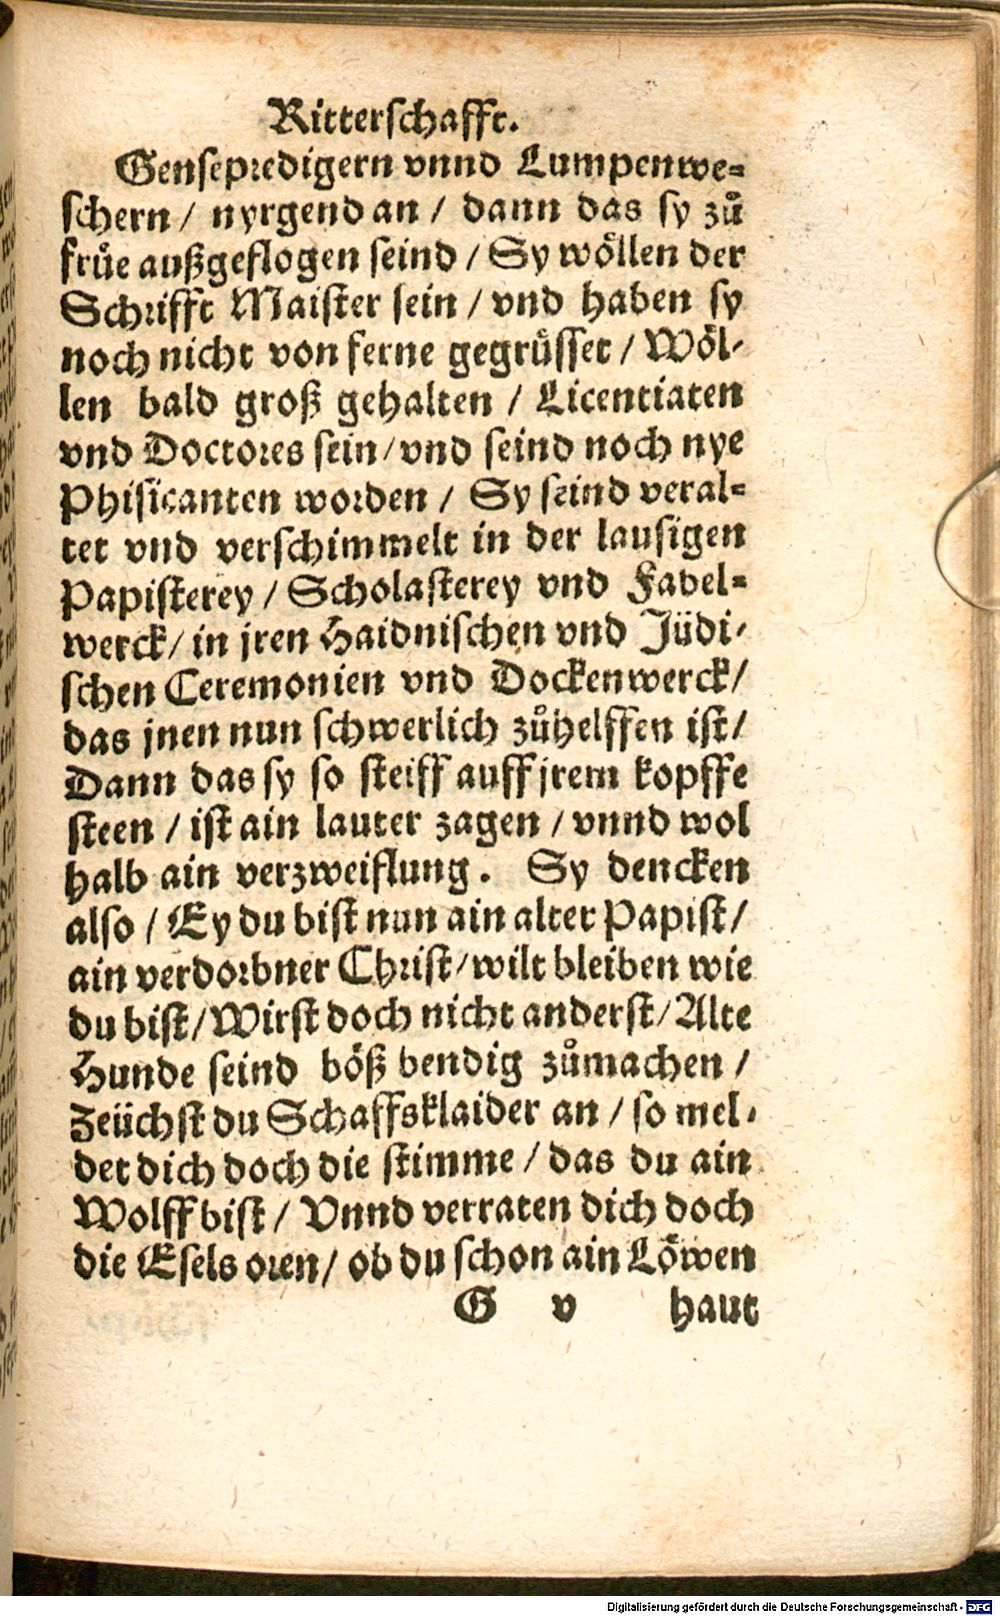 Ritterschafft.
Gensepredigern vnnd Lumpenwe=
schern / nyrgend an / dann das sy zuͦ
fruͤe außgeflogen seind / Sy woͤllen der
Schrifft Maister sein / vnd haben sy
noch nicht von ferne gegruͤsset / Woͤl-
len bald groß gehalten / Licentiaten
vnd Doctores sein / vnd seind noch nye
Phisicanten worden / Sy seind veral=
tet vnd verschimmelt in der lausigen
Papisterey / Scholasterey vnd Fabel=
werck / in jren Haidnischen vnd Jüdi-
schen Ceremonien vnd Dockenwerck /
das jnen nun schwerlich zuͦhelffen ist /
Dann das sy so steiff auff jrem kopffe
steen / ist ain lauter zagen / vnnd wol
halb ain verzweiflung. Sy dencken
also / Ey du bist nun ain alter Papist /
ain verdorbner Christ / wilt bleiben wie
du bist / Wirst doch nicht anderst / Alte
Hunde seind boͤß bendig zuͦmachen /
Zeüchst du Schaffsklaider an / so mel-
det dich doch die stimme / das du ain
Wolff bist / Vnnd verraten dich doch
die Esels oren / ob du schon ain Loͤwen
G v haut
Digitalisierung gefördert durch die Deutsche Forschungsgemeinschaft - DFG